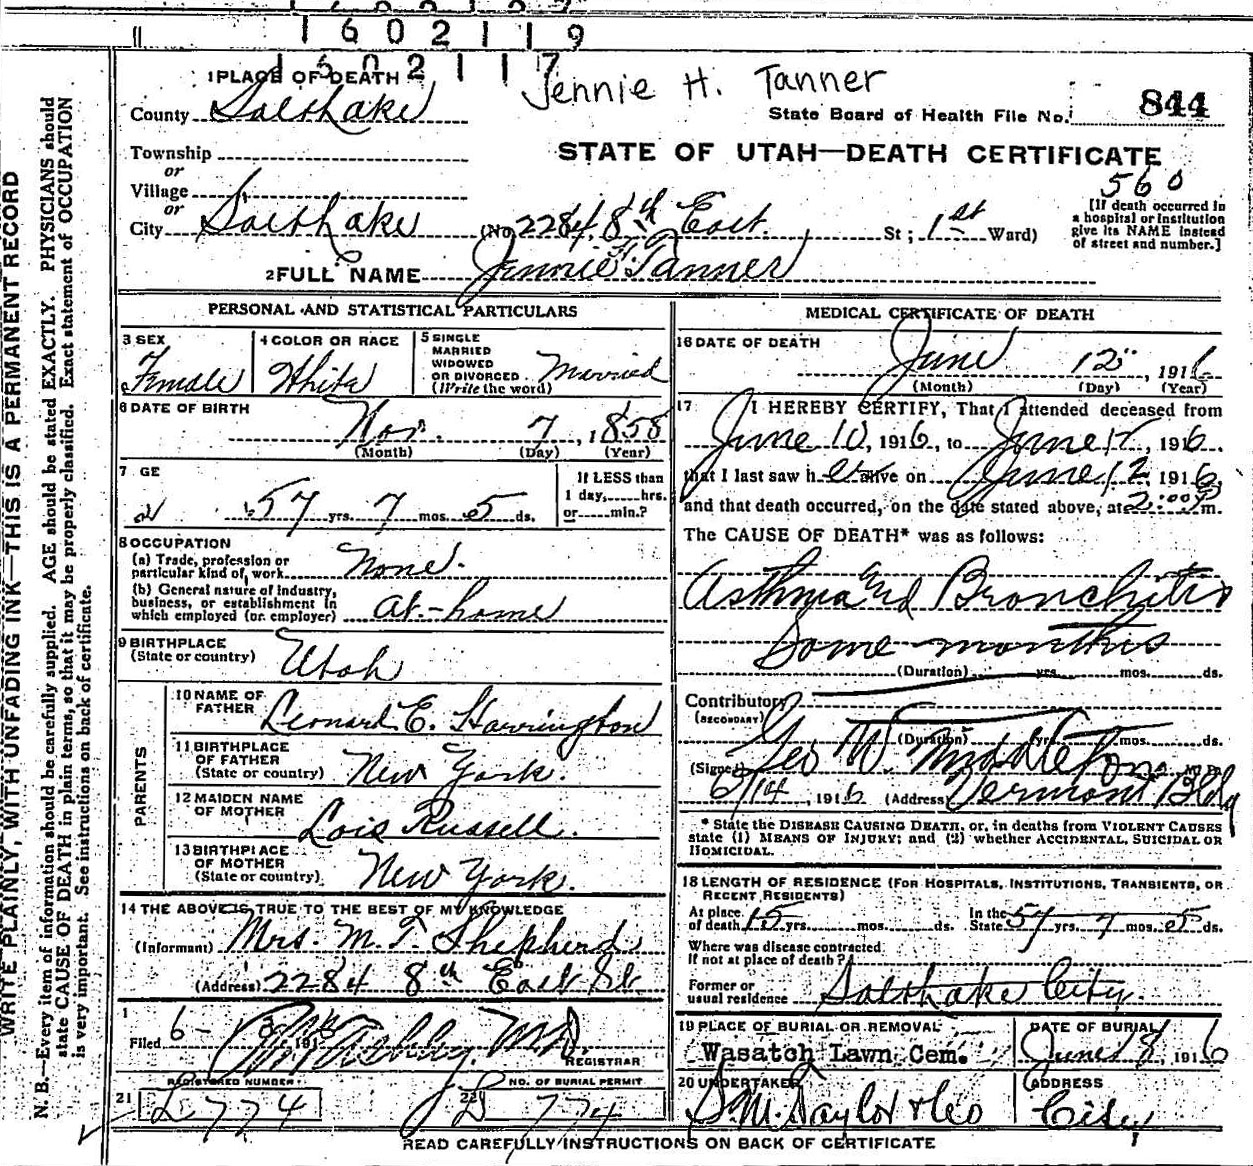 1602119
1602117
Jennie H. Tanner
1 PLACE OF DEATH
County Salt Lake
State Board of Health File No. 844
Township
or
Village
or
STATE OF UTAH—DEATH CERTIFICATE
560
City Salt Lake (No. 2284 8th East St; 1st Ward)
[If death occurred in
a hospital or institution
give its NAME instead
of street and number.]
2 FULL NAME Jennie H. Tanner
PERSONAL AND STATISTICAL PARTICULARS
3 SEX
Female
4 COLOR OR RACE
White
5 SINGLE
MARRIED
WIDOWED
OR DIVORCED
(Write the word)
Married
6 DATE OF BIRTH
Nov. 7, 1858
(Month) (Day) (Year)
7 GE
57 yrs. 7 mos. 5 ds.
If LESS than
1 day, hrs.
or min.?
8 OCCUPATION
(a) Trade, profession or
particular kind of work None.
(b) General nature of industry,
business, or establishment in
which employed (or employer) at-home
9 BIRTHPLACE
(State or country) Utah
PARENTS
10 NAME OF
FATHER Leonard E. Harrington
11 BIRTHPLACE
OF FATHER
(State or country) New York.
12 MAIDEN NAME
OF MOTHER Lois Russell.
13 BIRTHPLACE
OF MOTHER
(State or country) New York.
14 THE ABOVE IS TRUE TO THE BEST OF MY KNOWLEDGE
(Informant) Mrs. M. T. Shepherd
(Address) 2284 8th East St.
Filed 6- 191 M.D.
REGISTRAR
21 REGISTERED NUMBER
774
22 NO. OF BURIAL PERMIT
774
MEDICAL CERTIFICATE OF DEATH
16 DATE OF DEATH
June 12, 1916
(Month) (Day) (Year)
17 I HEREBY CERTIFY, That I attended deceased from
June 10, 1916, to June 12, 1916.
that I last saw her alive on June 12 1916,
and that death occurred, on the date stated above, at 2:00 P m.
The CAUSE OF DEATH* was as follows:
Asthma and Bronchitis
Some months
(Duration) yrs. mos. ds.
Contributory
(SECONDARY)
(Duration) yrs. mos. ds.
(Signed) Geo W. Middleton M.D.
6/14, 1916 (Address) Vermont Bldg
* State the DISEASE CAUSING DEATH, or, in deaths from VIOLENT CAUSES
state (1) MEANS OF INJURY; and (2) whether ACCIDENTAL, SUICIDAL OR
HOMICIDAL.
18 LENGTH OF RESIDENCE (FOR HOSPITALS, INSTITUTIONS, TRANSIENTS, OR
RECENT RESIDENTS)
At place
of death 15 yrs. mos. ds.
In the
State 57 yrs. 7 mos. 5 ds.
Where was disease contracted
if not at place of death?
Former or
usual residence Salt Lake City.
19 PLACE OF BURIAL OR REMOVAL
Wasatch Lawn Cem.
DATE OF BURIAL
1916
20 UNDERTAKER
S.M. Taylor & Co
ADDRESS
City
READ CAREFULLY INSTRUCTIONS ON BACK OF CERTIFICATE
WRITE PLAINLY, WITH UNFADING INK—THIS IS A PERMANENT RECORD
N. B.—Every item of information should be carefully supplied. AGE should be stated EXACTLY. PHYSICIANS should
state CAUSE OF DEATH in plain terms, so that it may be properly classified. Exact statement of OCCUPATION
is very important. See instructions on back of certificate.